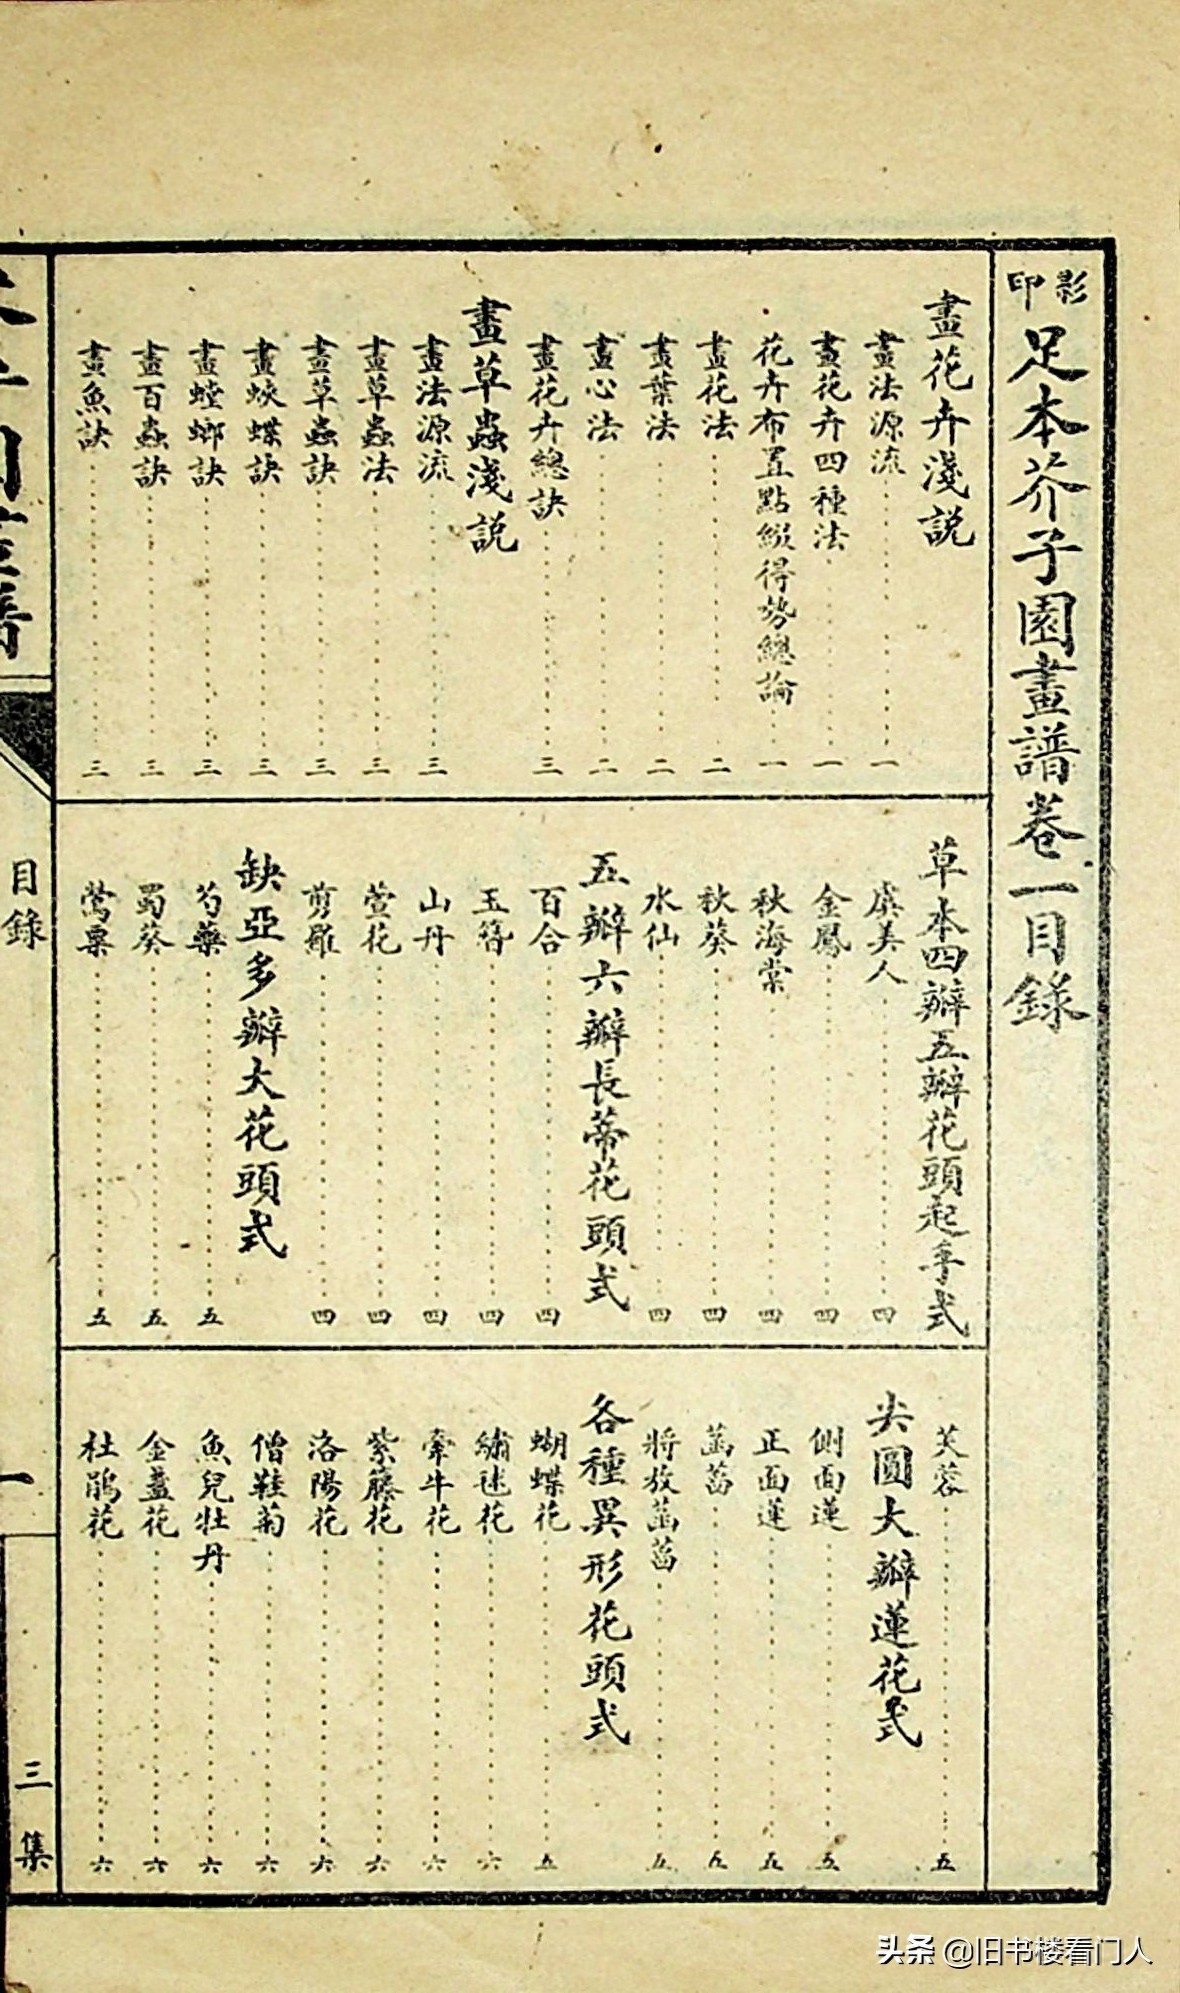 影印足本芥子園畫譜卷一目錄
畫花卉淺說
畫法源流 一
畫花卉四種法 一
花卉布置點綴得勢總論 一
畫花法 二
畫葉法 二
畫心法 二
畫花卉總訣 三
畫草蟲淺説
畫法源流 三
畫草蟲法 三
畫草蟲訣 三
畫蛺蝶訣 三
畫螳螂訣 三
畫百蟲訣 三
畫魚訣 三
草本四瓣五瓣花頭起手式
虞美人 四
金鳳 四
秋海棠 四
秋葵 四
水仙 四
五瓣六瓣長蒂花頭式
百合 四
玉簪 四
山丹 四
萱花 四
剪羅 四
缺亞多瓣大花頭式
芍藥 五
蜀葵 五
鶯粟 五
芙蓉 五
尖圓大瓣蓮花式
側面蓮 五
正面蓮 五
菡萏 五
將放菡萏 五
各種異形花頭式
蝴蝶花 五
繡毬花 六
牽牛花 六
紫藤花 六
洛陽花 六
僧鞋菊 六
魚兒牡丹 六
金盞花 六
杜鵑花 六
目錄
一
三集
头条 @旧书楼看门人